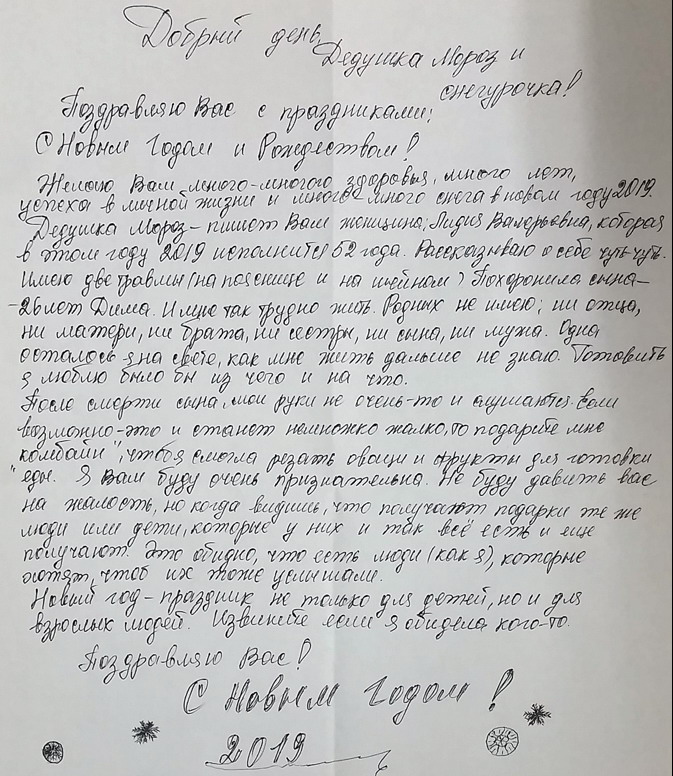 Добрый день,
Дедушка Мороз и
снегурочка!
Поздравляю Вас с праздниками:
С Новым Годом и Рождеством!
Желаю Вам много-много здоровья, много лет,
успеха в личной жизни и много-много снега в новом году 2019.
Дедушка Мороз - пишет Вам женщина; Лидия Валерьевна, которая
в этом году 2019 исполнится 52 года. Рассказываю о себе чуть-чуть.
Имею две травмы (на пояснице и на шейном) Похоронила сына -
- 26 лет Дима. И мне так трудно жить. Родных не имею; ни отца,
ни матери, ни брата, ни сестры, ни сына, ни мужа. Одна
осталось я на свете, как мне жить дальше не знаю. Готовить
я люблю было бы из чего и на что.
После смерти сына, мои руки не очень-то и слушаются. Если
возможно - это и станет немножко жалко, то подарите мне
"комбайн", чтоб я смогла резать овощи и фрукты для готовки
еды. Я Вам буду очень признательна. Не буду давить вас
на жалость, но когда видишь, что получают подарки те же
люди или дети, которые у них и так всё есть и еще
получают. Это обидно, что есть люди (как я), которые
хотят, чтоб их тоже услышали.
Новый год - праздник не только для детей, но и для
взрослых людей. Извините если я обидела кого-то.
Поздравляю Вас!
С Новым Годом!
2019